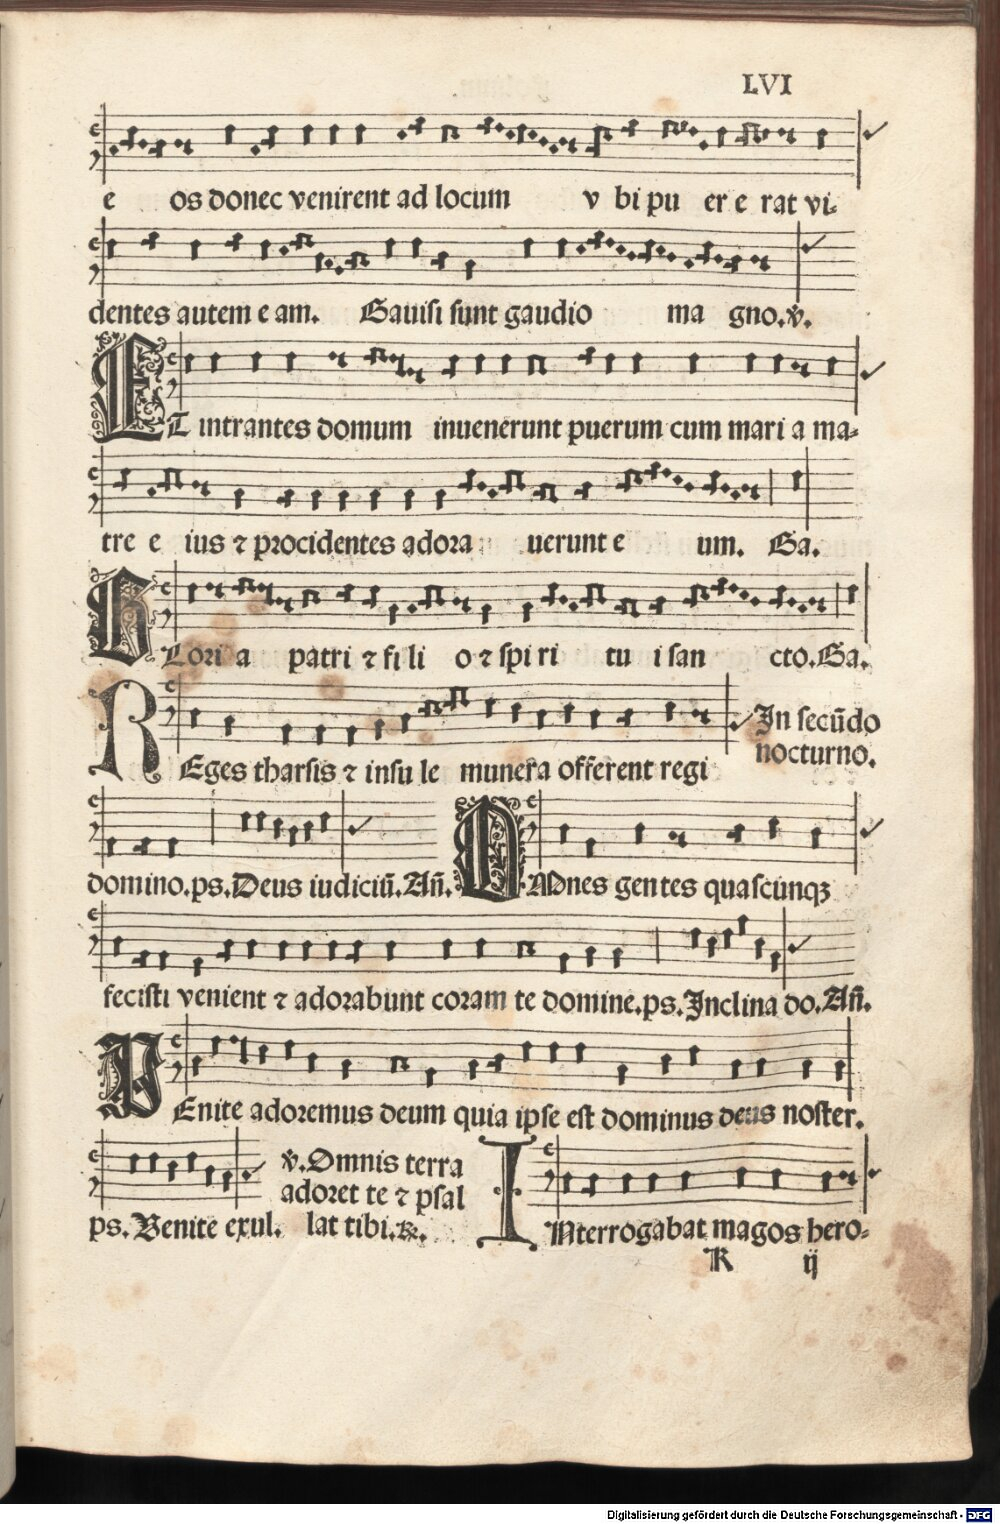 LVI
e os donec venirent ad locum v bi pu er e rat vi-
dentes autem e am. Gauisi sunt gaudio ma gno. v̓.
ET intrantes domum inuenerunt puerum cum mari a ma-
tre e ius ⁊ procidentes adora uerunt e um. Ga.
GLori a patri ⁊ fi li o ⁊ spi ri tu i san cto. Ga.
REges tharsis ⁊ insu le munera offerent regi
In secūdo
nocturno.
domino. ps. Deus iudiciū. Añ. OMnes gentes quascunqꝫ
fecisti venient ⁊ adorabunt coram te domine. ps. Inclina do. Añ.
VEnite adoremus deum quia ipse est dominus deus noster.
ps. Venite exul.
v̓. Omnis terra
adoret te ⁊ psal
lat tibi. ℟.
INterrogabat magos hero-
K ij
Digitalisierung gefördert durch die Deutsche Forschungsgemeinschaft - DFG